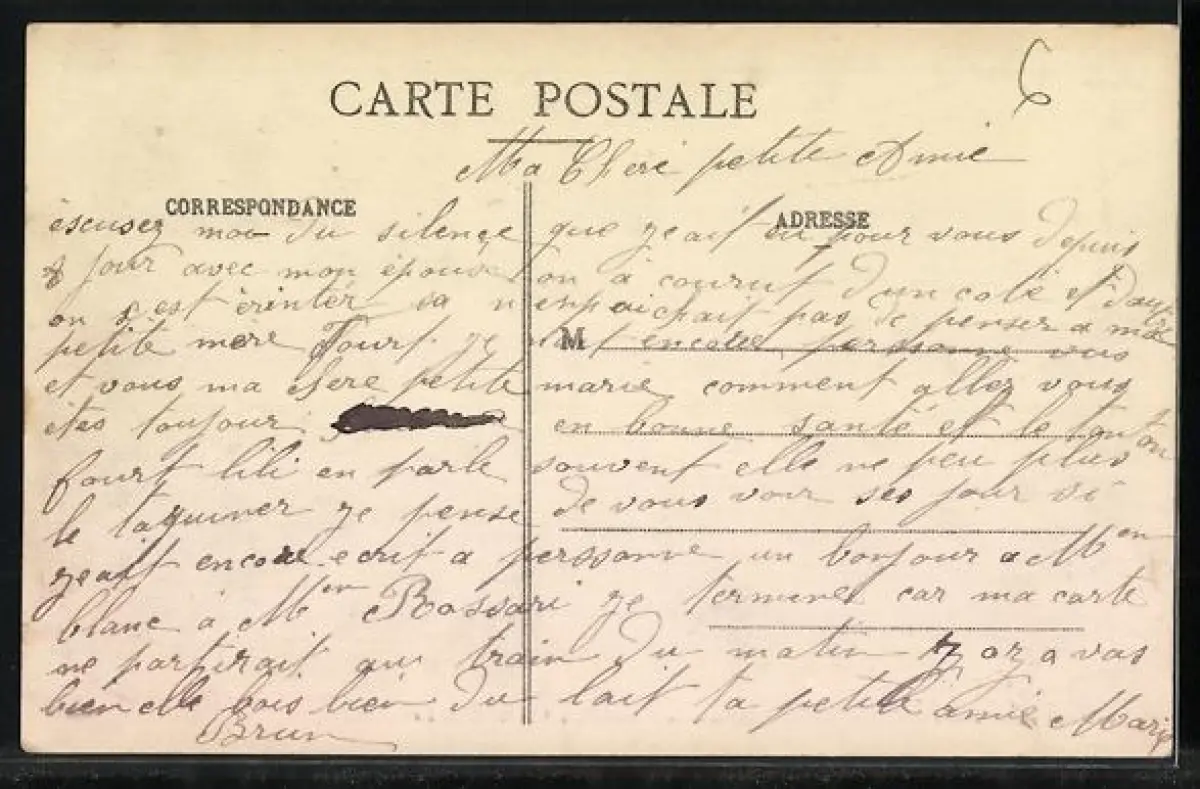 6
CARTE POSTALE
Ma Cheré petite Amie
CORRESPONDANCE
ADRESSE
èscusez moa du silençe que geait pour vous depuis
8 jour avec mon épouse on à courut d'un coté et
on s'est èrintér sa n'enpaichait pas de penser a ma
petite mere Fourt encore perssonne vous
M
et vous ma chere petite marie comment allez vous
ètes toujour en bonne santé et le tonton
fourt lili en parle souvent elle ne peu plus
le taquiner ge pense de vous voir ses jour si
geait encore ecrit a perssonne un bonjour a Men
blanc à Men Rossari ge termine car ma carte
ne partirait au train du matin va vas
bien elle bois bien du lait ta petite amie Marie
Brun